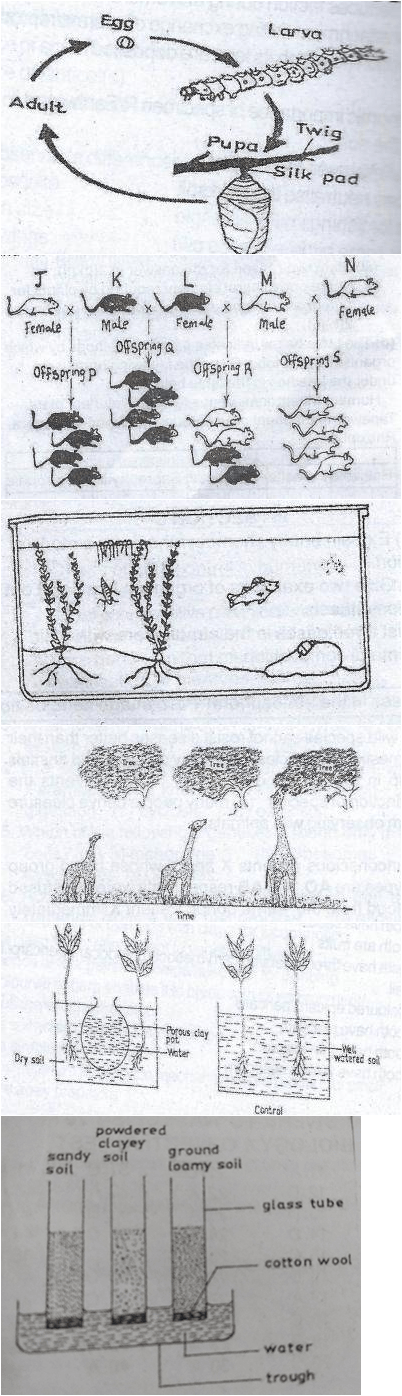 Egg
Larva
Adult
Pupa
Twig
Silk pad
J K L M N
Female x Male x Female x Male x Female
Offspring P
Offspring Q
Offspring R
Offspring S
Tree Tree Tree
Time
Porous clay
pot
Water
Dry soil
Well
watered soil
Control
sandy
soil
powdered
clayey
soil
ground
loamy soil
glass tube
cotton wool
water
trough